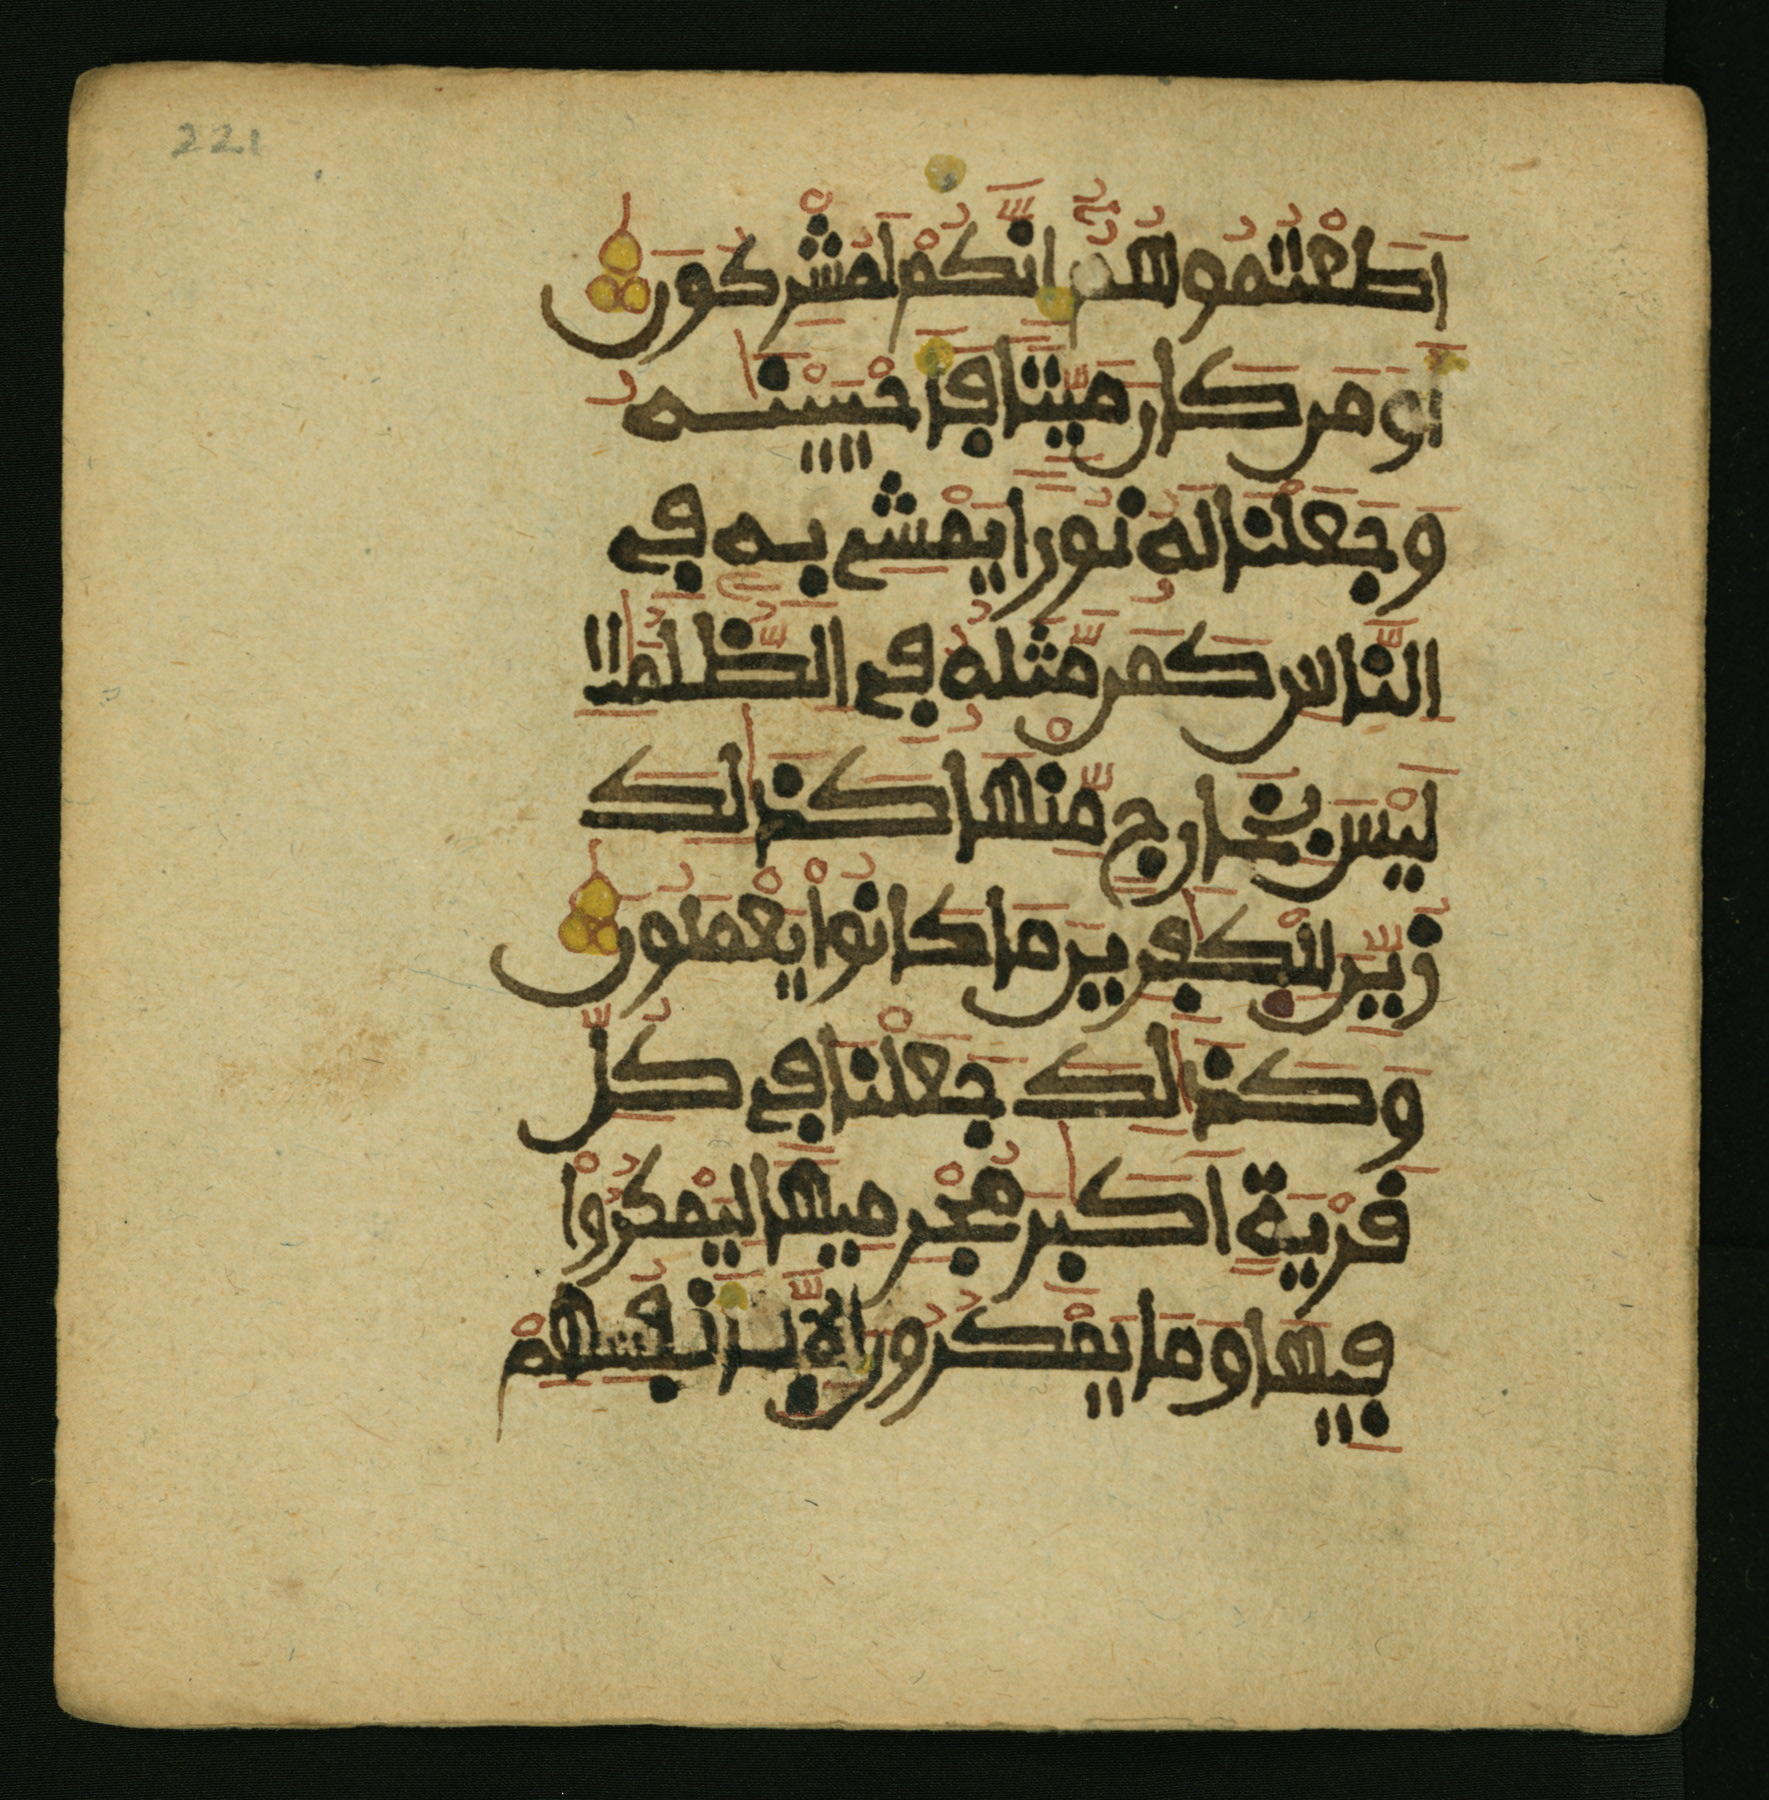 221
اَطَعْتُمُوهُمُۥٓ إِنَّكُمْ لَمُشْرِكُونَ
أَوَمَن كَانَ مَيِّتًا فَأَحْيَيْنَٰهُ
وَجَعَلْنَا لَهُۥ نُورًا يَمْشِے بِهِۦ فِے
النَّاسِ كَمَن مَّثَلُهُۥ فِے الظُّلُمَٰتِ
لَيْسَ بِخَارِجٍ مِّنْهَا كَذَٰلِكَ
زُيِّنَ لِلْكَٰفِرِينَ مَا كَانُواْ يَعْمَلُونَ
وَكَذَٰلِكَ جَعَلْنَا فِے كُلِّ
قَرْيَةٍ اَكَٰبِرَ مُجْرِمِيهَا لِيَمْكُرُواْ
فِيهَا وَمَا يَمْكُرُونَ إِلَّا بِأَنفُسِهِمْ